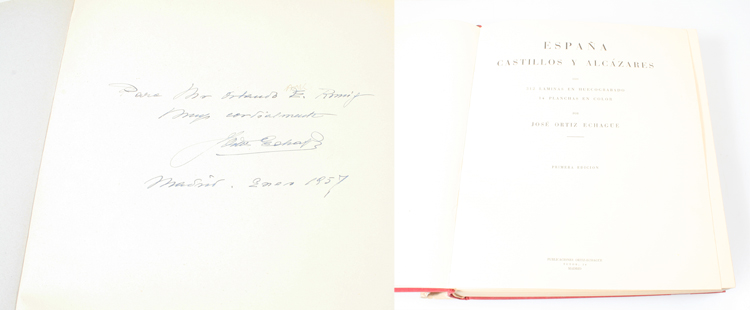 Para Mr Orlando E.
Muy cordialmente
Madrid. Enero 1957
ESPAÑA
CASTILLOS Y ALCÁZARES
CON
LÁMINAS EN HUECOGRABADO
PLANCHAS EN COLOR
POR
JOSÉ ORTIZ ECHAGÜE
PRIMERA EDICIÓN
MADRID